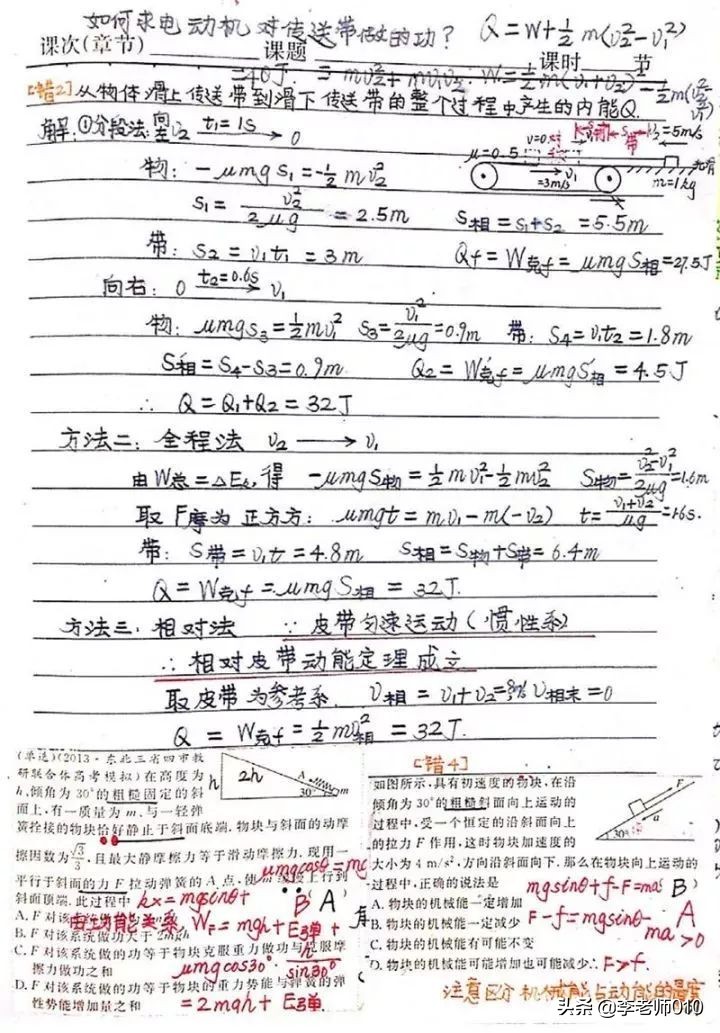 如何求电动机对传送带做的功? Q=W+½m(v₂²-v₁²)
课次(章节) 课题 课时 节
=40J. = mv₂²+mv₁v₂. W=½m(v₁+v₂)²-½m(v₂²-v₁²)
[错2] 从物体滑上传送带到滑下传送带的整个过程中产生的内能Q.
解:①分段法:向左v₂ t₁=1s→ 0
v=0 S物 S带 v₂=5m/s
μ=0.5 v₁=3m/s m=1kg 光滑
物: -μmgs₁=-½mv₂²
s₁=v₂²/2μg=2.5m S相=s₁+s₂=5.5m
带: S₂=v₁t₁=3m Qf=W克f=μmgS相=27.5J
向右: 0 t₂=0.6s→ v₁
物: μmgs₃=½mv₁² s₃=v₁²/2μg=0.9m 带: S₄=v₁t₂=1.8m
S相=S₄-S₃=0.9m Q₂=W克f=μmgS相=4.5J
∴ Q=Q₁+Q₂=32J
方法二: 全程法 v₂ → v₁
由W总=△Eₖ,得 -μmgS物=½mv₁²-½mv₂² S物=v₂²-v₁²/2μg=1.6m
取F摩为正方方: μmgt=mv₁-m(-v₂) t=v₁+v₂/μg=1.6s.
带: S带=v₁t=4.8m S相=S物+S带=6.4m
Q=W克f=μmgS相=32J.
方法三. 相对法 ∵皮带匀速运动(惯性系)
∴相对皮带动能定理成立
取皮带为参考系. v相=v₁+v₂=8m/s v相末=0
Q=W克f=½mv相²=32J.
(单选)(2013·东北三省四市教
研联合体高考模拟)在高度为
h、倾角为30°的粗糙固定的斜
面上,有一质量为m、与一轻弹
簧拴接的物块恰好静止于斜面底端.物块与斜面的动摩
擦因数为√3/3,且最大静摩擦力等于滑动摩擦力.现用一
平行于斜面的力F拉动弹簧的A点,使m缓慢上行到
斜面顶端.此过程中
h 2h A 30° m
μmgcosθ=mg
kx=mgsinθ+
(B A)
由功能关系, W_F=mgh+E弹+
B.F对该系统做功大于2mgh
C.F对该系统做的功等于物块克服重力做功与克服摩
擦力做功之和
μmgcos30°·h/sin30°
D.F对该系统做的功等于物块的重力势能与弹簧的弹
性势能增加量之和
=2mgh+E弹.
[错4]
如图所示,具有初速度的物块,在沿
倾角为30°的粗糙斜面向上运动的
过程中,受一个恒定的沿斜面向上
的拉力F作用,这时物块加速度的
大小为4 m/s²,方向沿斜面向下.那么在物块向上运动的
过程中,正确的说法是
F a 30°
mgsinθ+f-F=ma
(B)
A.物块的机械能一定增加
B.物块的机械能一定减少
F-f=mgsinθ-ma>0
A
C.物块的机械能有可能不变
D.物块的机械能可能增加也可能减少
∴F>f.
注意区分机械能与动能的
头条 @李老师010